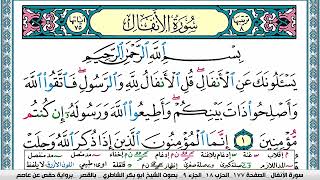 سُورَةُ الأَنفَالِ
بِسْمِ اللَّهِ الرَّحْمَٰنِ الرَّحِيمِ
يَسْـَٔلُونَكَ عَنِ الْأَنفَالِ قُلِ الْأَنفَالُ لِلَّهِ وَالرَّسُولِ فَاتَّقُوا اللَّهَ
وَأَصْلِحُوا ذَاتَ بَيْنِكُمْ وَأَطِيعُوا اللَّهَ وَرَسُولَهُ إِن كُنتُم
مُّؤْمِنِينَ ١ إِنَّمَا الْمُؤْمِنُونَ الَّذِينَ إِذَا ذُكِرَ اللَّهُ وَجِلَتْ
سورة الأنفال الصفحة ١٧٧ الحزب ١٨ الجزء ٩ بصوت الشيخ أبو بكر الشاطري برواية حفص عن عاصم